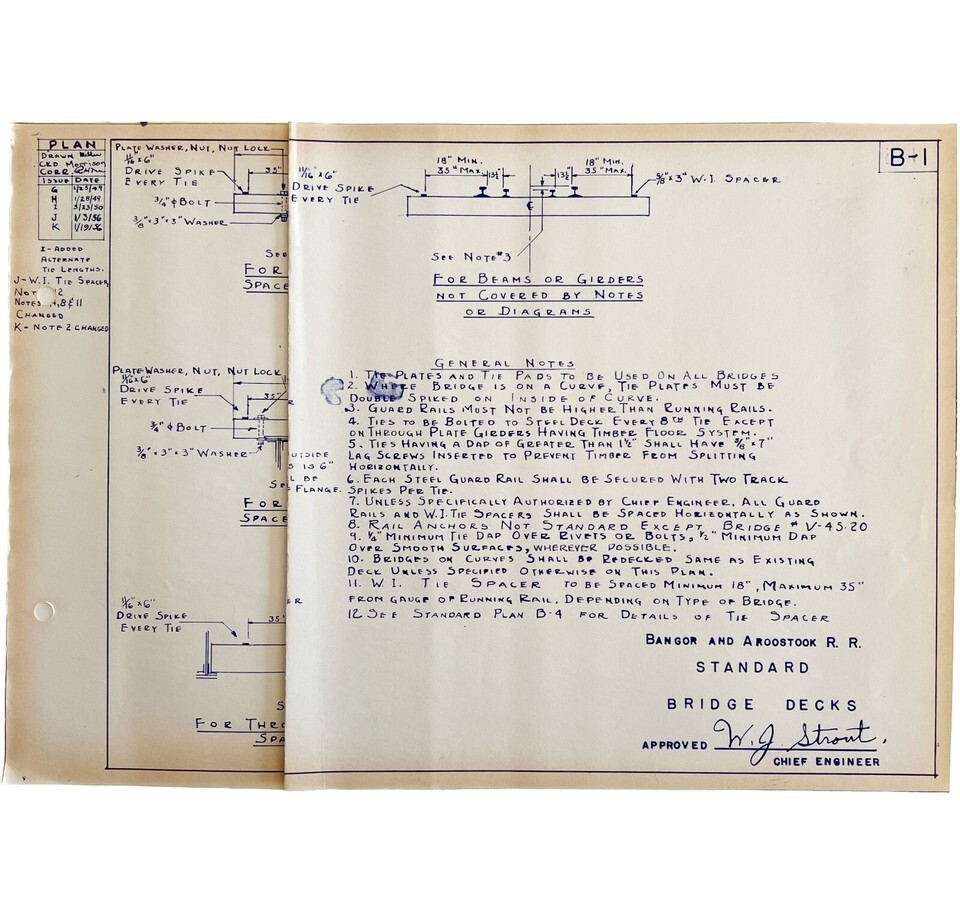 PLAN
DRAWN
CKD. Morrison
CORR.
ISSUE DATE
G 1/25/49
H 1/28/49
I 3/23/50
J 1/3/56
K 1/19/56
I-ADDED
ALTERNATE
TIE LENGTHS.
J-W.I. TIE SPACER,
12
NOTES 8&11
CHANGED
K-NOTE 2 CHANGED
PLATE WASHER, NUT, NUT LOCK
11/16"x6"
DRIVE SPIKE
EVERY TIE
35"
3/4"ɸBOLT
3/8"x3"x3"WASHER
SEE
FOR
SPACE
PLATE WASHER, NUT, NUT LOCK
11/16"x6"
DRIVE SPIKE
EVERY TIE
35"
3/4"ɸBOLT
3/8"x3"x3"WASHER
FOR
SPACE
11/16"x6"
DRIVE SPIKE
EVERY TIE
35"
S
FOR THRO
SPA
11/16"x6"
DRIVE SPIKE
EVERY TIE
18" MIN.
35" MAX.
13½"
13½"
18" MIN.
35" MAX.
5/8"x3" W.I. SPACER
℄
SEE NOTE #3
FOR BEAMS OR GIRDERS
NOT COVERED BY NOTES
OR DIAGRAMS
B-1
UTSIDE
S IS 6"
L BE
FLANGE.
ER
GENERAL NOTES
1. TIE PLATES AND TIE PADS TO BE USED ON ALL BRIDGES
2. WHERE BRIDGE IS ON A CURVE, TIE PLATES MUST BE
DOUBLE SPIKED ON INSIDE OF CURVE.
3. GUARD RAILS MUST NOT BE HIGHER THAN RUNNING RAILS.
4. TIES TO BE BOLTED TO STEEL DECK EVERY 8TH TIE EXCEPT
ON THROUGH PLATE GIRDERS HAVING TIMBER FLOOR SYSTEM.
5. TIES HAVING A DAP OF GREATER THAN 1½" SHALL HAVE 3/8"x7"
LAG SCREWS INSERTED TO PREVENT TIMBER FROM SPLITTING
HORIZONTALLY.
6. EACH STEEL GUARD RAIL SHALL BE SECURED WITH TWO TRACK
SPIKES PER TIE.
7. UNLESS SPECIFICALLY AUTHORIZED BY CHIEF ENGINEER, ALL GUARD
RAILS AND W.I. TIE SPACERS SHALL BE SPACED HORIZONTALLY AS SHOWN.
8. RAIL ANCHORS NOT STANDARD EXCEPT BRIDGE # V-45.20
9. ¼" MINIMUM TIE DAP OVER RIVETS OR BOLTS, ½" MINIMUM DAP
OVER SMOOTH SURFACES, WHEREVER POSSIBLE.
10. BRIDGES ON CURVES SHALL BE REDECKED SAME AS EXISTING
DECK UNLESS SPECIFIED OTHERWISE ON THIS PLAN.
11. W. I. TIE SPACER TO BE SPACED MINIMUM 18", MAXIMUM 35"
FROM GAUGE OF RUNNING RAIL, DEPENDING ON TYPE OF BRIDGE.
12 SEE STANDARD PLAN B-4 FOR DETAILS OF TIE SPACER
BANGOR AND AROOSTOOK R. R.
STANDARD
BRIDGE DECKS
APPROVED W. J. Strout,
CHIEF ENGINEER